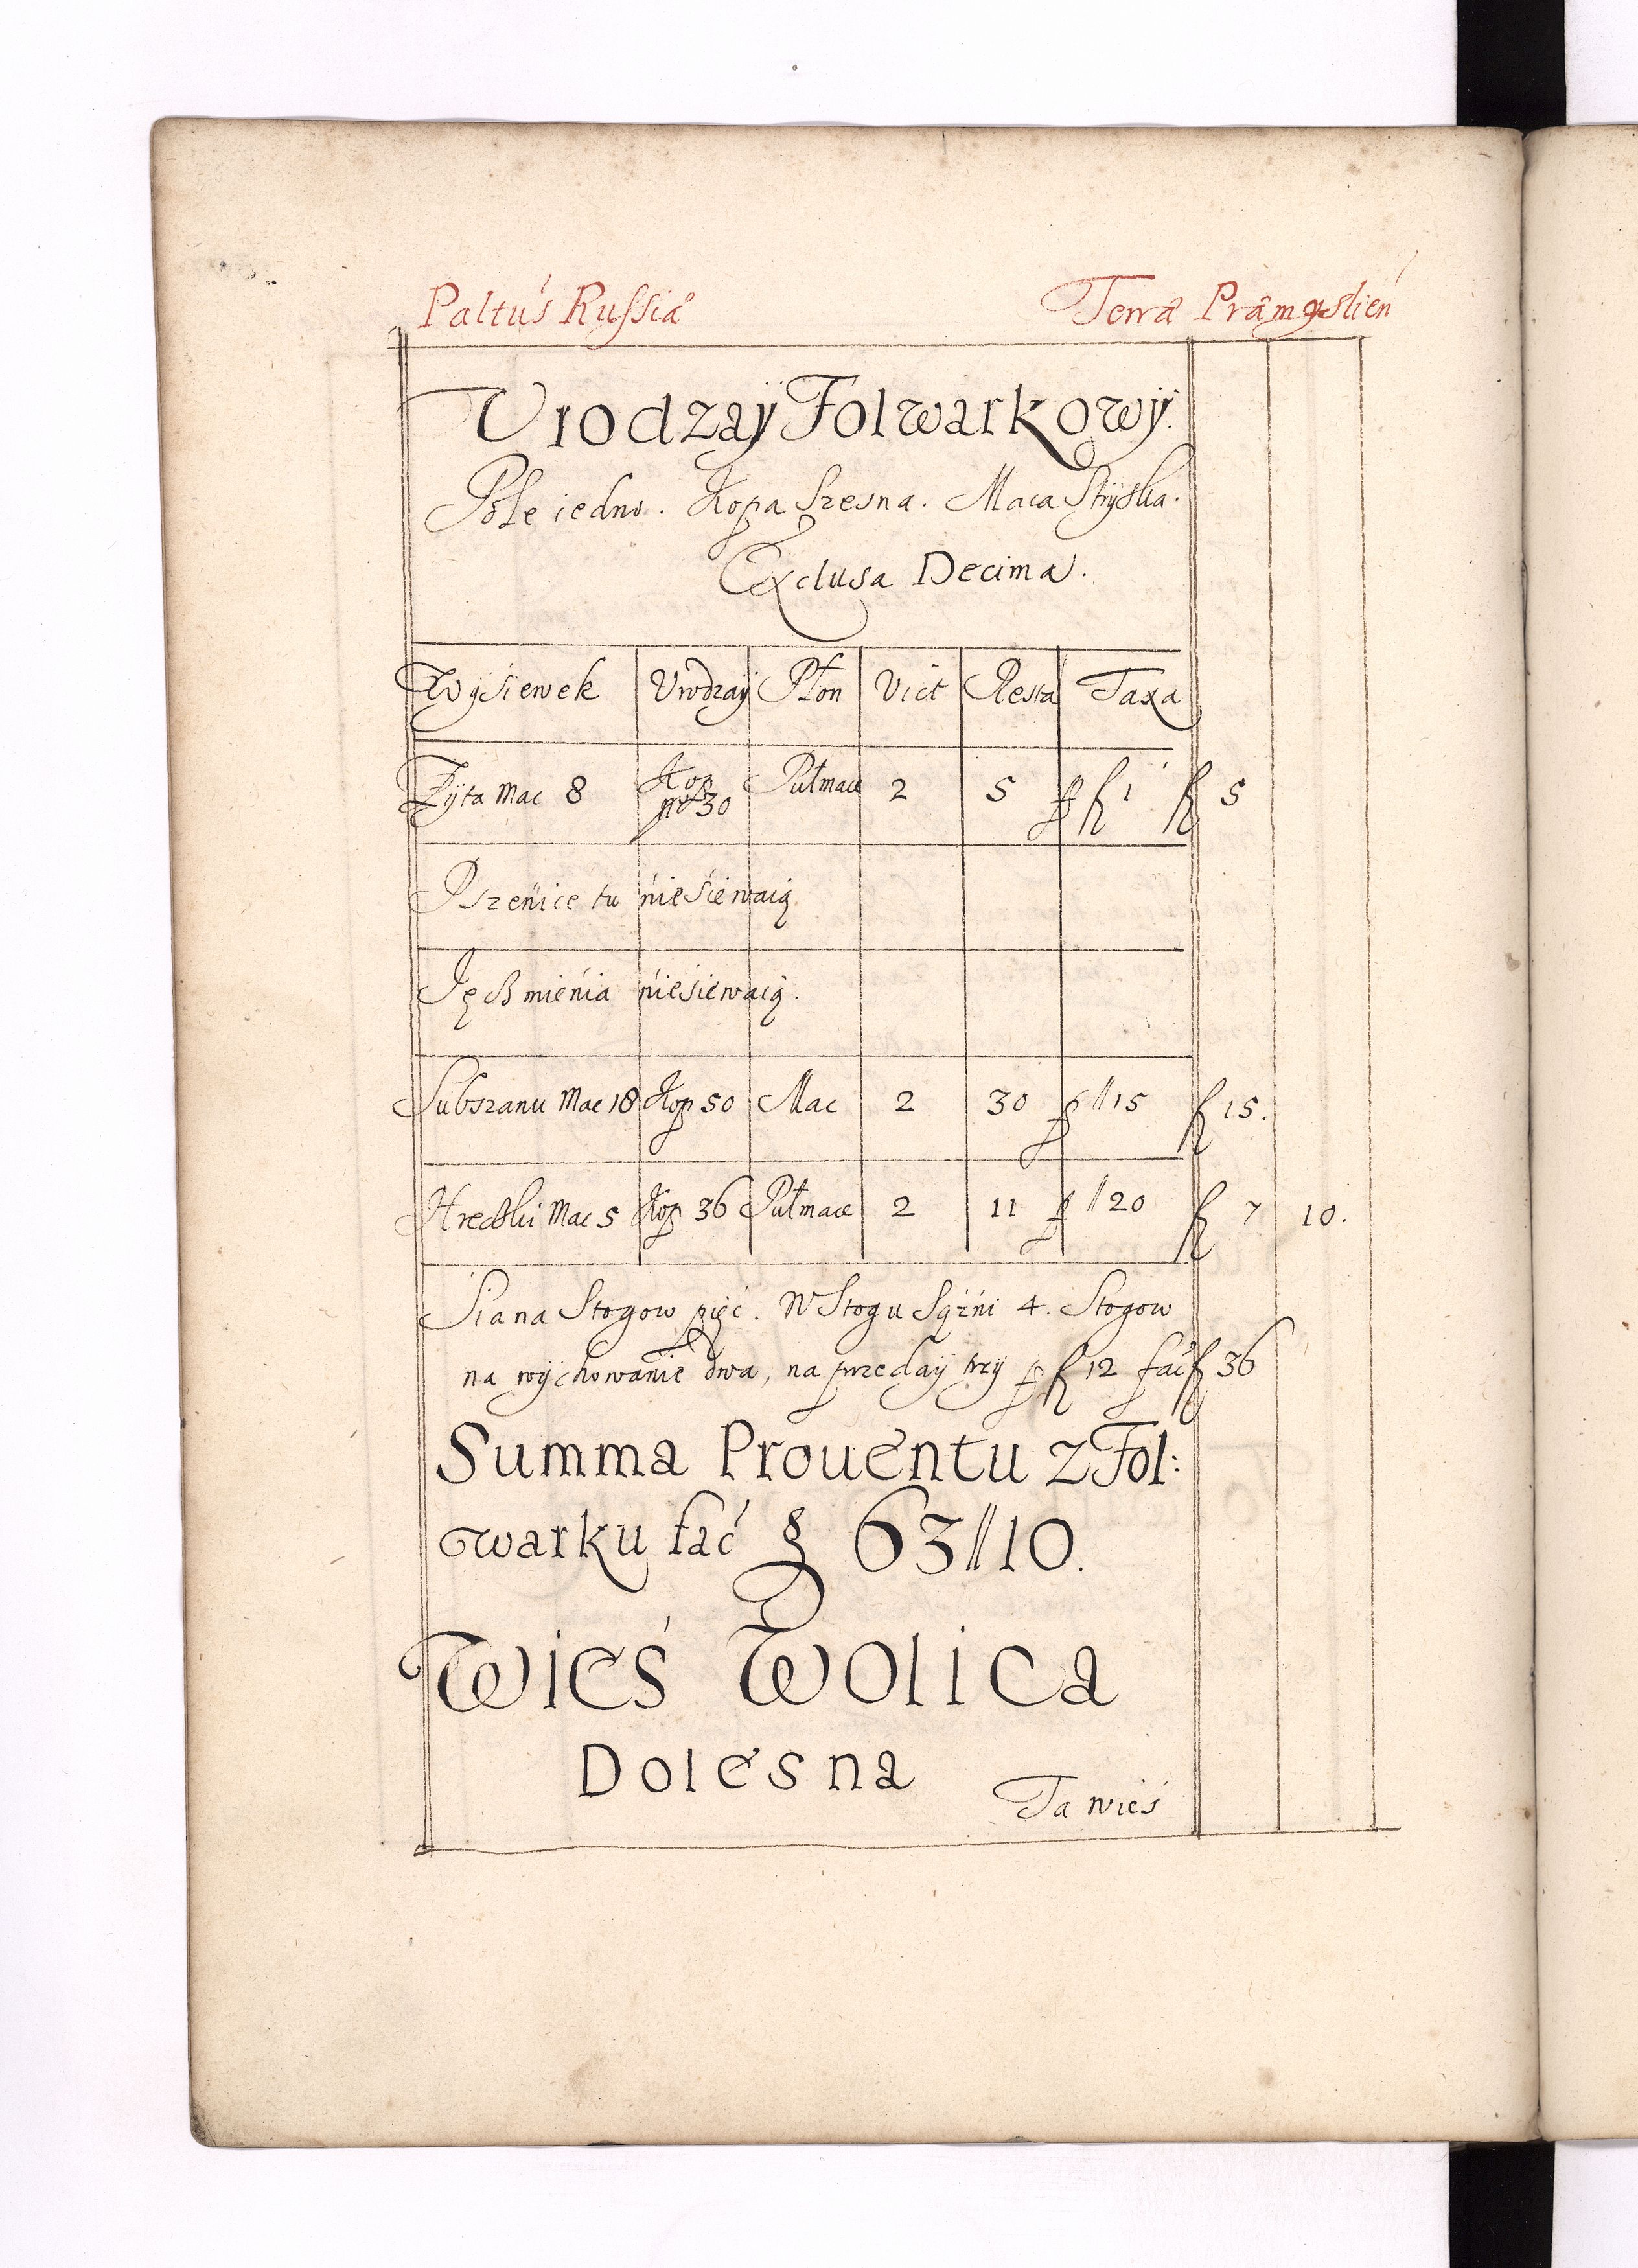 Paltus Russiæ Terræ Præmyslień
Vrodzaÿ Folwarkowÿ.
Pole iedno. Kopa Szesna. Maca Stryska.
Exclusa Decima.
Wysiewek Vrodzaÿ Płon Vict Resta Taxa
Zÿta Mac 8 Kop puł 30 Pułmace 2 5 ꝑ f 1 f 5
Pszenice tu niesiewaią.
Jęchmienia niesiewaią.
Mac 18 Kop 50 Mac 2 30 ꝑ //15 f 15.
Hreczki Mac 5 Kop 36 Pułmace 2 11 ꝑ //20 f 7 10.
Siana Stogow pięć. W Stogu Sążni 4. Stogow
na wychowanie dwa, na przedaÿ trzÿ ꝑ f 12 fać f 36
Summa Prouentu z Fol:
warku fać § 63//10.
Wieś Wolica
Dolesna
Ta wieś